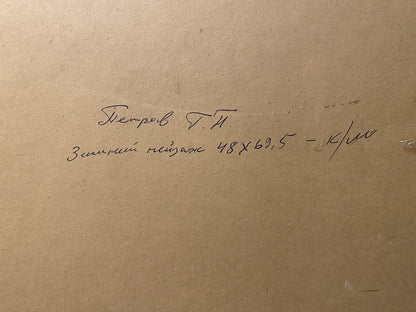 Петров Г.Н
Зимний пейзаж 48х69,5 - к/м